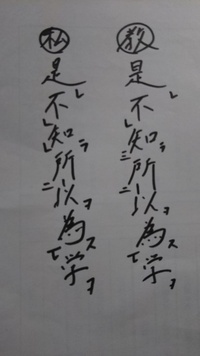 教 是レ不レ知ラ三所二以ヲ為ス一学ヲ
私 是レ不レ知ラレ所二以ヲ為ス一学ヲ